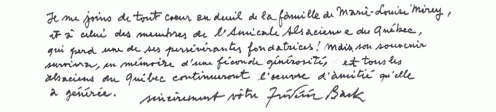 Je me joins de tout coeur au deuil de la famille de Marie-Louise Mirey,
et à celui des membres de l'Amicale Alsacienne du Québec,
qui perd une de ses persévérantes fondatrices! Mais son souvenir
survivra, en mémoire d'une féconde générosité, et tous les
alsaciens du Québec continueront l'oeuvre d'amitié qu'elle
a générée. sincèrement vôtre Frédéric Back